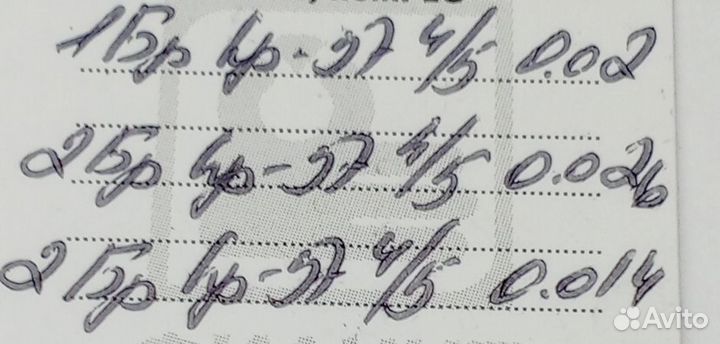 1 Бр Кр-57 4/5 0.02
2 Бр Кр-57 4/5 0.026
2 Бр Кр-57 4/5 0.014
Avito